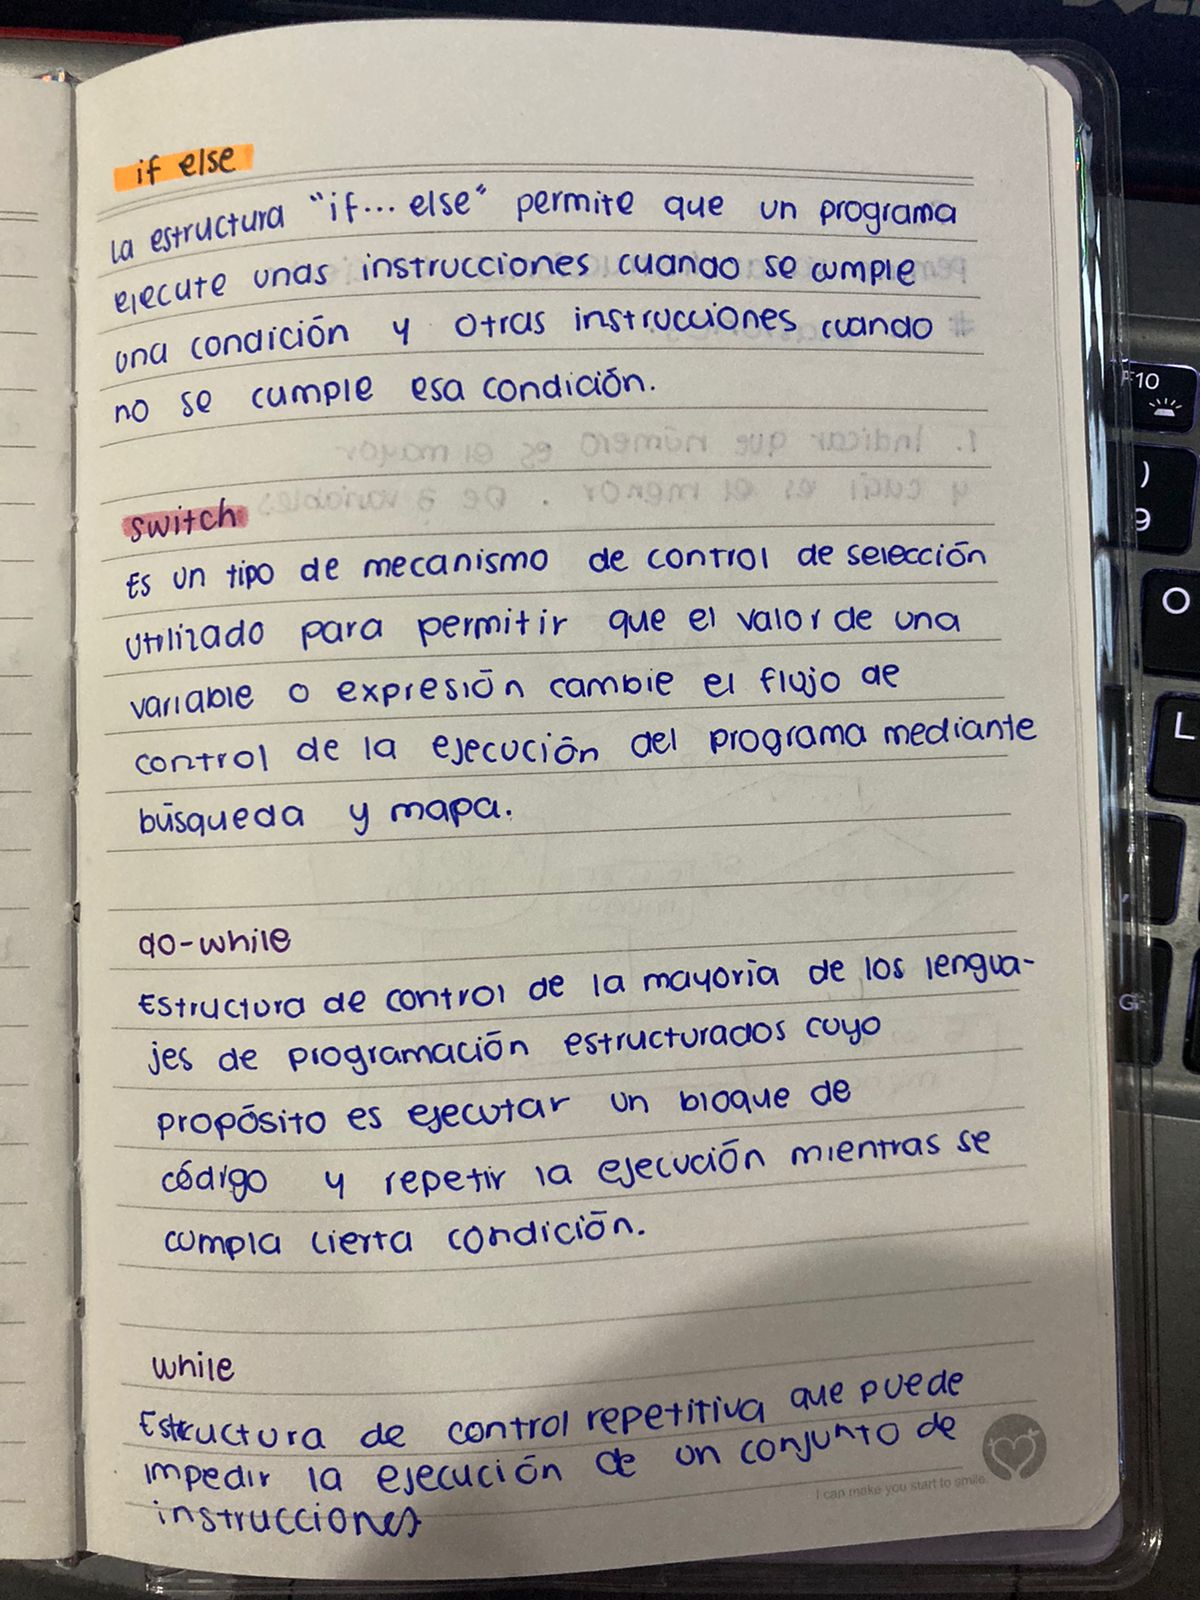 if else
La estructura "if... else" permite que un programa
ejecute unas instrucciones cuando se cumple
una condición y otras instrucciones cuando
no se cumple esa condición.
switch
Es un tipo de mecanismo de control de selección
utilizado para permitir que el valor de una
variable o expresión cambie el flujo de
control de la ejecución del programa mediante
búsqueda y mapa.
do-while
Estructura de control de la mayoria de los lengua-
jes de programación estructurados cuyo
propósito es ejecutar un bloque de
código y repetir la ejecución mientras se
cumpla cierta condición.
while
Estructura de control repetitiva que puede
impedir la ejecución de un conjunto de
instrucciones
I can make you start to smile.
F10
)
9
O
L
G